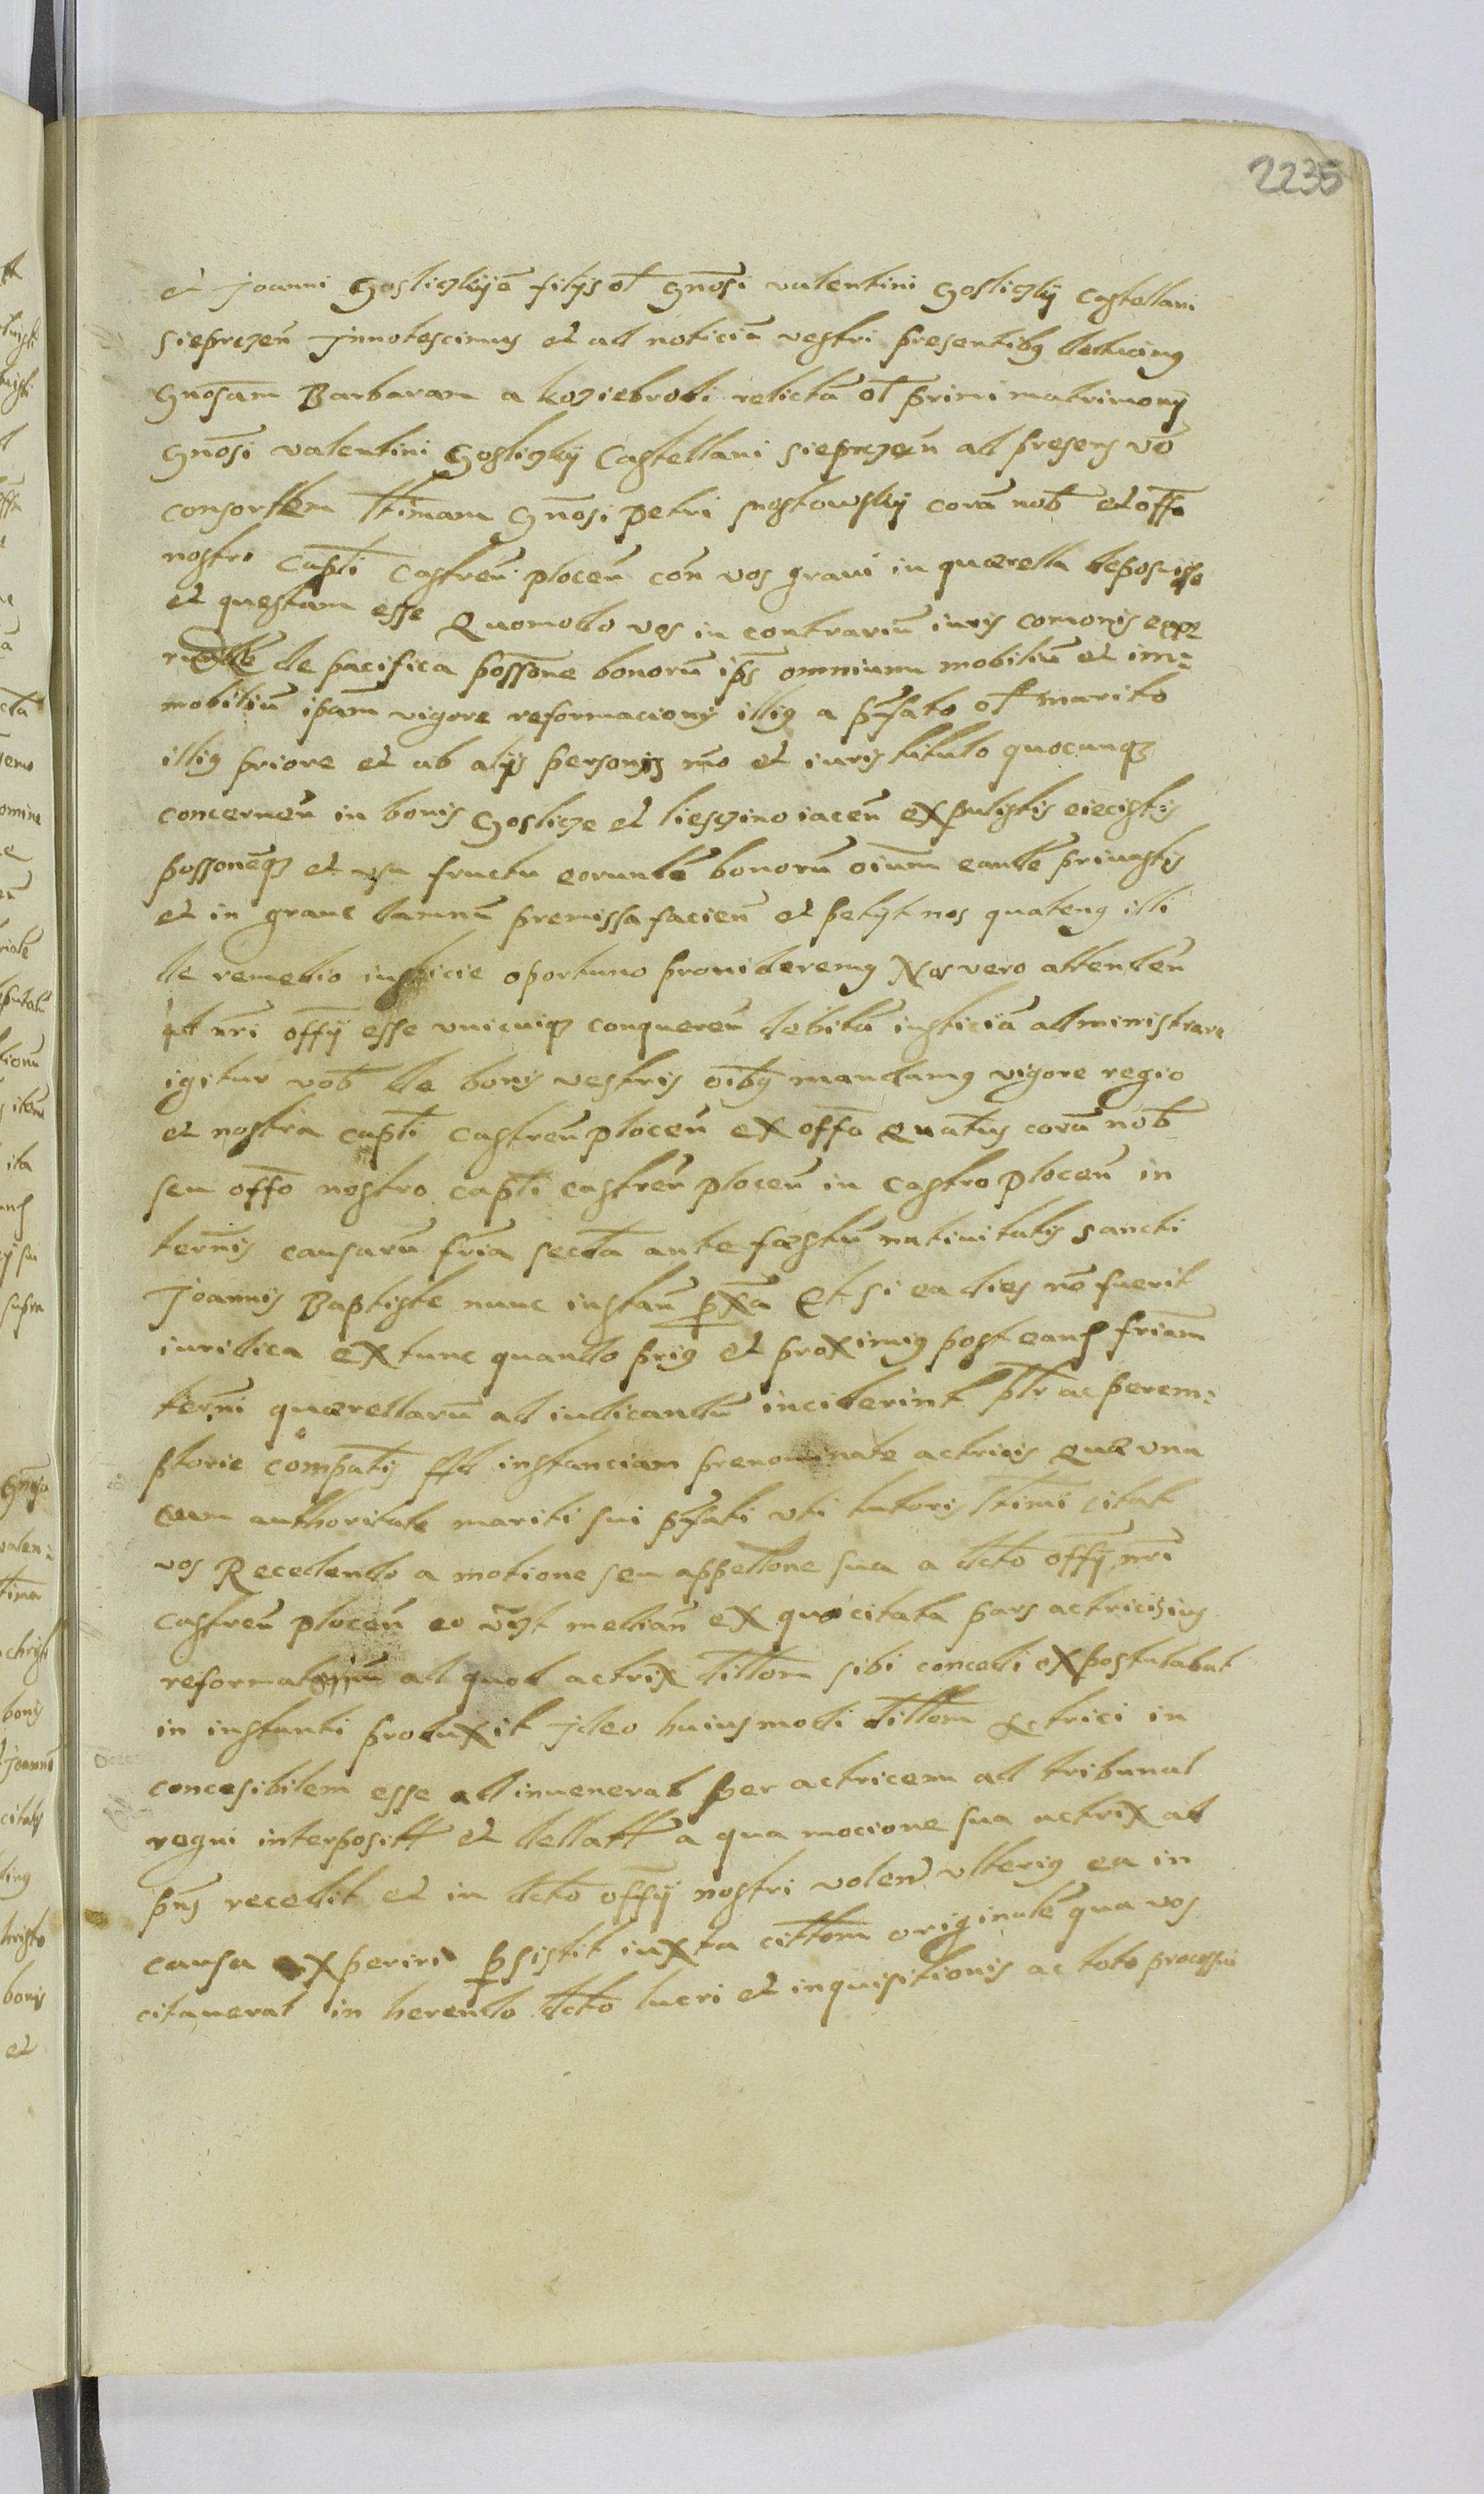 2235
et Joanni Gosliczkÿē filÿs ol Gnōsi valentini Gosliczkÿ Castellani
Sieprczeñ Jnnotescimus et ad noticiā vestri presentibꝯ deducimꝯ
Gnōsam Barbaram a koziebrodi relictā ol primi matrimonÿ
Gnōsi valentini Gosliczkÿ Castellani Sieprczeñ ad presens vō
consortem lttīmam Gnōsi Petri Mostowskÿ corā nob̄ et offo
nostro Capłi Castreñ Ploceñ coñ vos graui in quærella deposuisse
et questam esse Quomodo vos in contrariū iuris comonis
de pacifica possōne bonorū ip̄s omnium mobiliū et im:
mobiliū ip̄am vigore reformacionis illiꝯ a p̄fato ol marito
illiꝯ priore et ab alÿs personis mō et iuris titulo quocunqꝫ
concerneñ in bonis Goslicze et lieszino iaceñ expulistis eiecistis
possonēqꝫ et usu fructu eorundē bonorū oīum eandē priuastis
et in graue damnū premissa facieñ et petÿt nos quatenꝯ illi
de remedio iusticie oportuno prouideremꝯ Nos vero attendeñ
id nr̄i offÿ esse vnicuiqꝫ conquereñ debitā iusticiā administrare
igitur vob̄ de bonis vestris oībꝯ mandamꝯ vigore regio
et nostra capłi castreñ ploceñ ex offo Quatūs corā nob̄
seu offo nostro capłi castreñ Ploceñ in Castro Ploceñ in
ter̄nis causarū fr̄ia secda ante fæstū natiuitatis Sancti
Joannis Baptiste nunc instañ p̱x̄a Et si ea dies nō fuerit
iuridica extunc quando priꝯ et proximiꝯ post eand friam
ter̄ni quærellarū ad iudicandū inciderint pltr ac perem:
ptorie compatis Ad instanciam prenominate actricis Quæ vna
cum authoritate mariti sui p̄fati vti tutoris lttīmi citat
vos Recedendo a motione seu appellone sua a dcto offÿ nr̄i
castreñ ploceñ eo vꝫt mediañ ex quo citata pars actricis ius
ad quod actrix dillom sibi concedi expostulabat
in instanti produxit Jdeo huiusmodi dillom Actrici in
concesibilem esse adinuenerat per actricem ad tribunal
regni interposit et dellatt a qua mocione sua actrix ad
pn̄s recedit et in dcto offÿ nostri voleñ vlteriꝯ ea in
causa experiri p̱sistit iuxta cittom originalē qua vos
citauerat in herendo dcto lucri et inquisitionis ac toto processui